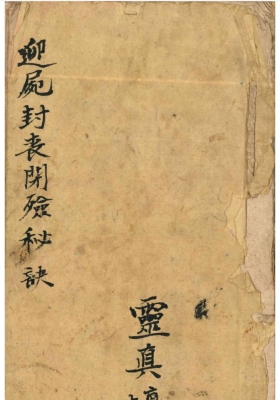 迎屍封喪閉殮秘訣
靈真